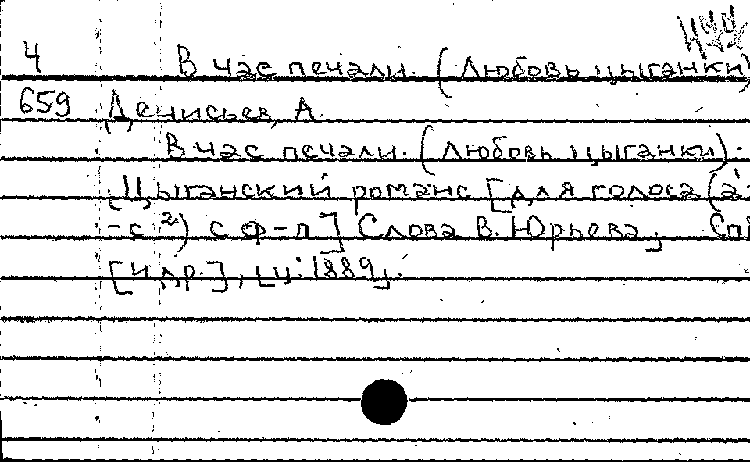 4 В час печали. (Любовь цыганки)
659 Денисьев, А.
В час печали. (Любовь цыганки).
Цыганский романс [для голоса (а¹
-с²) с ф-п] Слова В. Юрьева. Сп
[и др.], [ц: 1889].